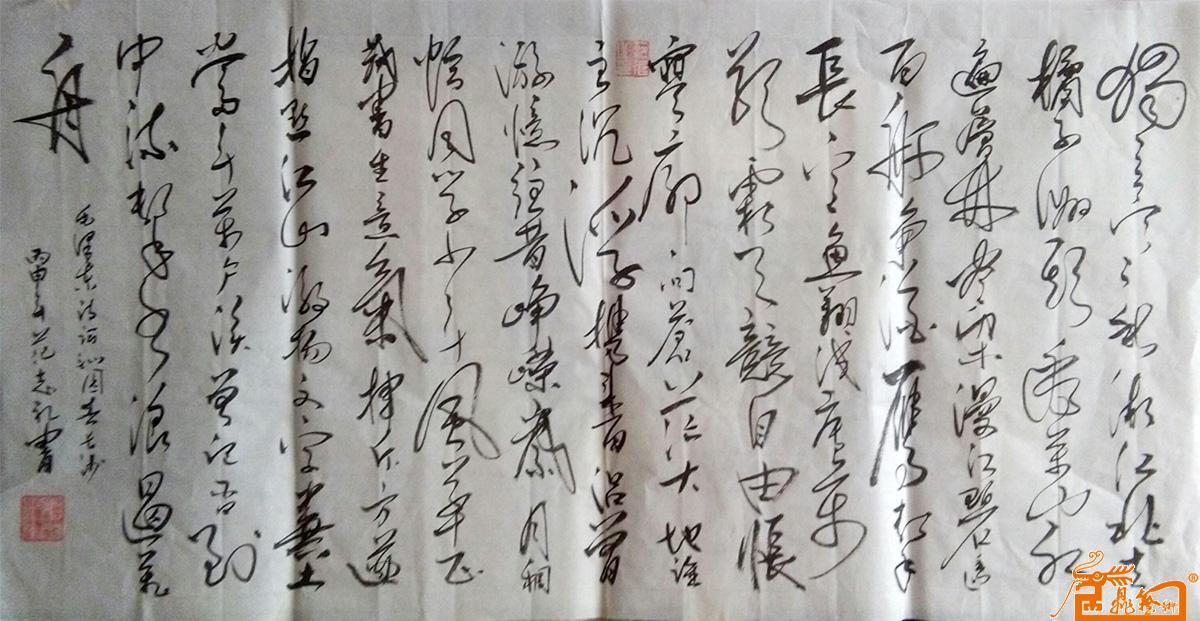 獨立寒秋湘江北去
橘子洲頭看萬山紅
遍層林盡染漫江碧透
百舸爭流鷹擊
長空魚翔淺底萬
類霜天競自由悵
寥廓問蒼茫大地誰
主沉浮攜來百侶曾
游憶往昔崢嶸歲月稠
恰同學少年風華正
茂書生意氣揮斥方遒
指點江山激揚文字糞土
當年萬户侯曾記否到
中流擊水浪遏飛
舟
毛澤东詩词沁园春长沙
丙申年范志礼書